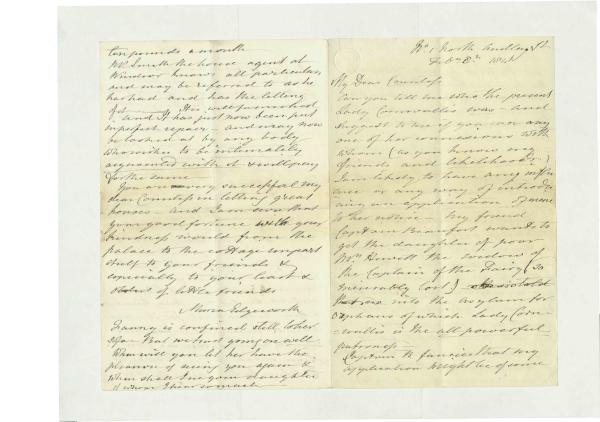 No 1 North Audley St.
Feb 8th 1841
My Dear Countess
Can you tell me who the present
Lady Cornwallis was – and
suggest to me if you can any
one of her connexions with
whom (as you know my
friends and likelihoods)
I am likely to have any influ
ence or any way of introdu
cing an application of mine
to her notice – My friend
Captain Beaufort wants to
get the daughter of poor
Mrs Hewett the widow of
the Captain of the Fairy (so
miserably lost)
into the Asylum for
Orphans of which Lady Corn-
wallis is the all powerful
patroness –
Captain B fancies that my
application might be of some
ten pounds a month
Mr Smith the house agent at
Windsor knows all particulars
and may be referred to as he
has had and has the letting
of it It is well furnished
and it has just now been put
in perfect repair – and may now
be looked at by any body
who wishes to be intimately
acquainted with it & will pay
for the same –
You are very successful my
dear Countess in letting great
houses – and I am sure that
your good fortune with your
kindness would from the
palace to the cottage impart
itself to your friends &
especially to your least &
of little friends
Maria Edgeworth
Fanny is confined still to her
sofa – But we trust going on well
When will you let her have the
pleasure of seeing you again &
when shall I see your daughter
of whom I hear so much